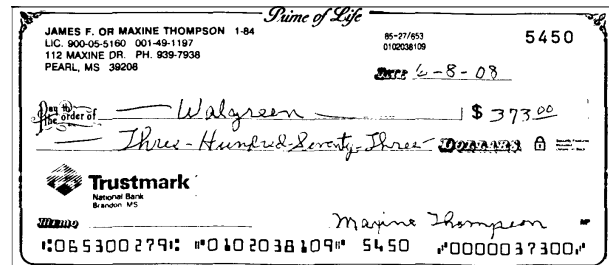 Prime of Life
JAMES F. OR MAXINE THOMPSON 1-84
LIC. 900-05-5160 001-49-1197
112 MAXINE DR. PH. 939-7938
PEARL, MS 39208
85-27/653
0102038109
5450
DATE 6-8-08
Pay to the order of Walgreen $ 373.00
Three-Hundred-Seventy-Three DOLLARS
Trustmark
National Bank
Brandon MS
MEMO Maxine Thompson MP
⑆065300279⑆ ⑈0102038109⑈ 5450 ⑈0000037300⑈